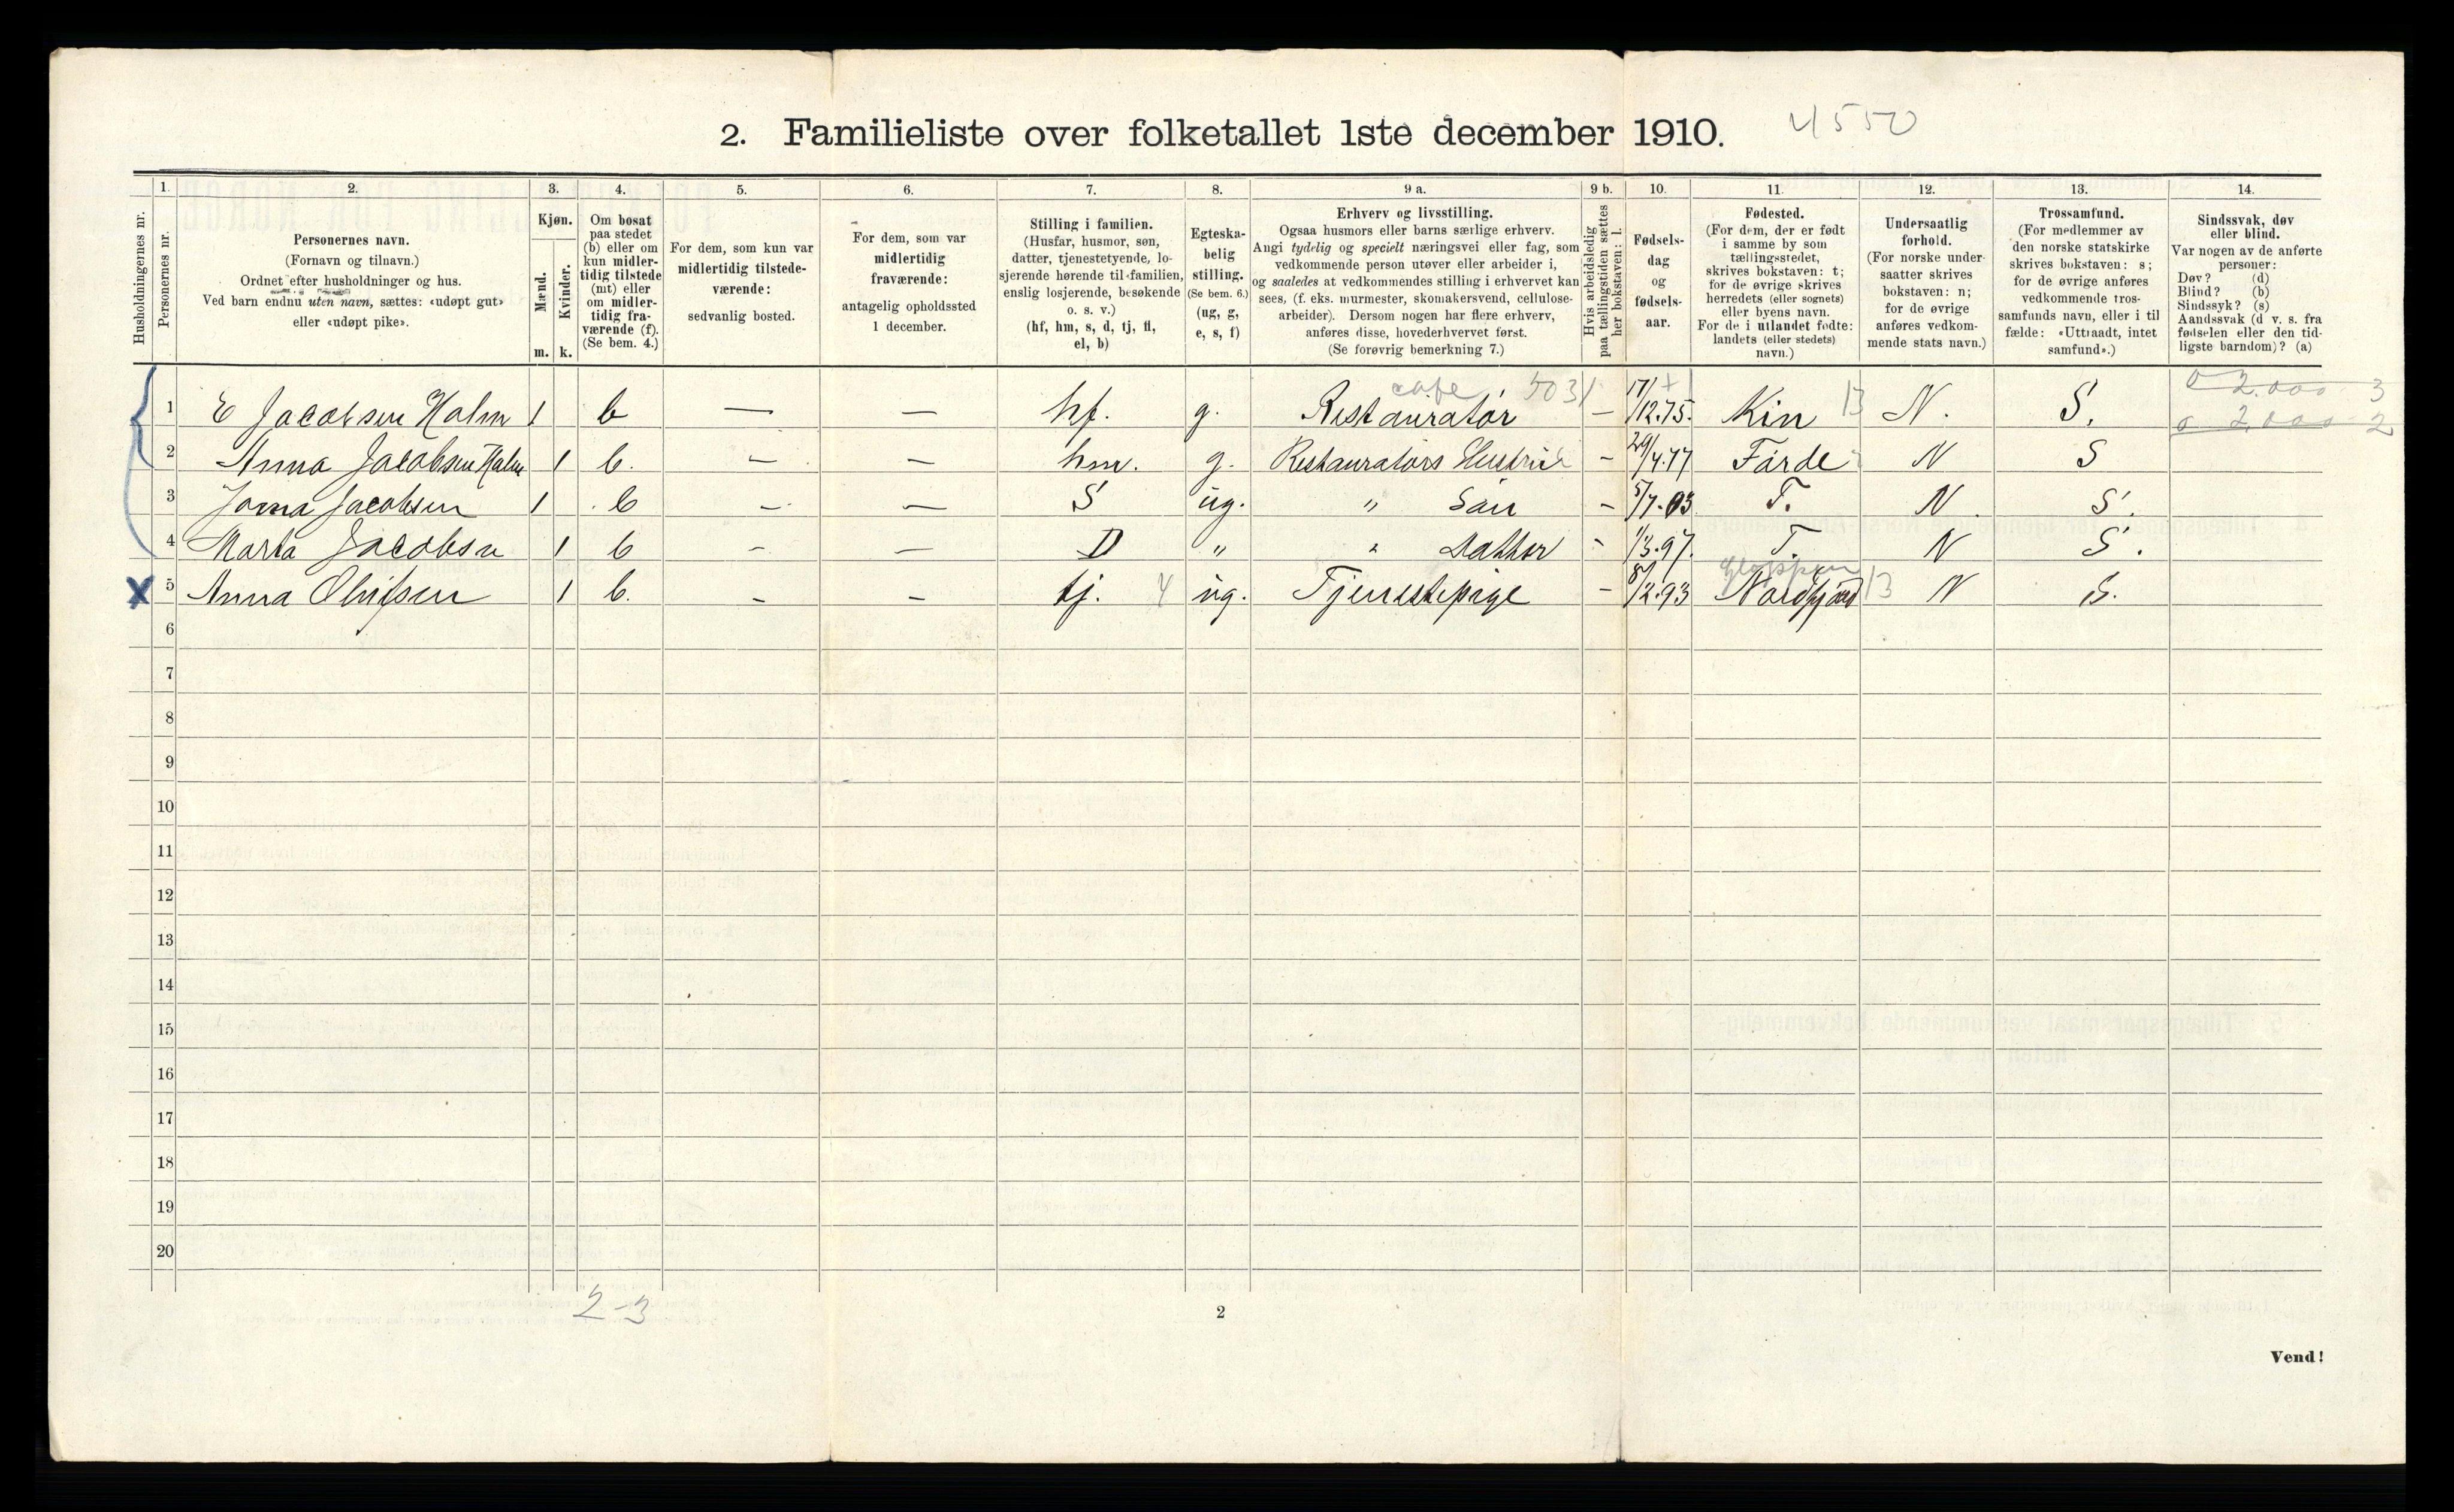 2. Familieliste over folketallet 1ste december 1910. 4550
Husholdningernes nr.
1. Personernes nr.
2. Personernes navn. (Fornavn og tilnavn.) Ordnet efter husholdninger og hus. Ved barn endnu uten navn, sættes: «udøpt gut» eller «udøpt pike».
3. Kjøn. Mænd. m. Kvinder. k.
4. Om bosat paa stedet (b) eller om kun midlertidig tilstede (mt) eller om midlertidig fraværende (f). (Se bem. 4.)
5. For dem, som kun var midlertidig tilstedeværende: sedvanlig bosted.
6. For dem, som var midlertidig fraværende: antagelig opholdssted 1 december.
7. Stilling i familien. (Husfar, husmor, søn, datter, tjenestetyende, losjerende hørende til familien, enslig losjerende, besøkende o. s. v.) (hf, hm, s, d, tj, fl, el, b)
8. Egteskabelig stilling. (Se bem. 6.) (ug, g, e, s, f)
9 a. Erhverv og livsstilling. Ogsaa husmors eller barns særlige erhverv. Angi tydelig og specielt næringsvei eller fag, som vedkommende person utøver eller arbeider i, og saaledes at vedkommendes stilling i erhvervet kan sees, (f. eks. murmester, skomakersvend, cellulosearbeider). Dersom nogen har flere erhverv, anføres disse, hovederhvervet først. (Se forøvrig bemerkning 7.)
9 b. Hvis arbeidsledig paa tællingstiden sættes her bokstaven: l.
10. Fødselsdag og fødselsaar.
11. Fødested. (For dem, der er født i samme by som tællingsstedet, skrives bokstaven: t; for de øvrige skrives herredets (eller sognets) eller byens navn. For de i utlandet fødte: landets (eller stedets) navn.)
12. Undersaatlig forhold. (For norske undersaatter skrives bokstaven: n; for de øvrige anføres vedkommende stats navn.)
13. Trossamfund. (For medlemmer av den norske statskirke skrives bokstaven: s; for de øvrige anføres vedkommende trossamfunds navn, eller i tilfælde: «Uttraadt, intet samfund».)
14. Sindssvak, døv eller blind. Var nogen av de anførte personer: Døv? (d) Blind? (b) Sindssyk? (s) Aandssvak (d v. s. fra fødselen eller den tidligste barndom)? (a)
cafe 5031 0 2.000 3
1 E Jacobsen Holm 1 b — — hf. g. Restauratør — 17/12.75. Kin 13 N. S. 0 2.000 2
2 Anna Jacobsen Holm 1 b. — — hm. g. Restauratørs Hustrue — 29/4.77 Førde N S
3 Jacobsen 1 b — — S ug. " Søn — 5/7.03 T. N S.
4 Marta Jacobsen 1 b — — D " " Datter - 1/3.97. T. N S.
Gloppen
X 5 Anna Olufsen 1 b. — — tj. 4 ug. Tjenestepige — 8/2.93 Nordfjord 13 N S.
6
7
8
9
10
11
12
13
14
15
16
17
18
19
20
2-3
2
Vend!